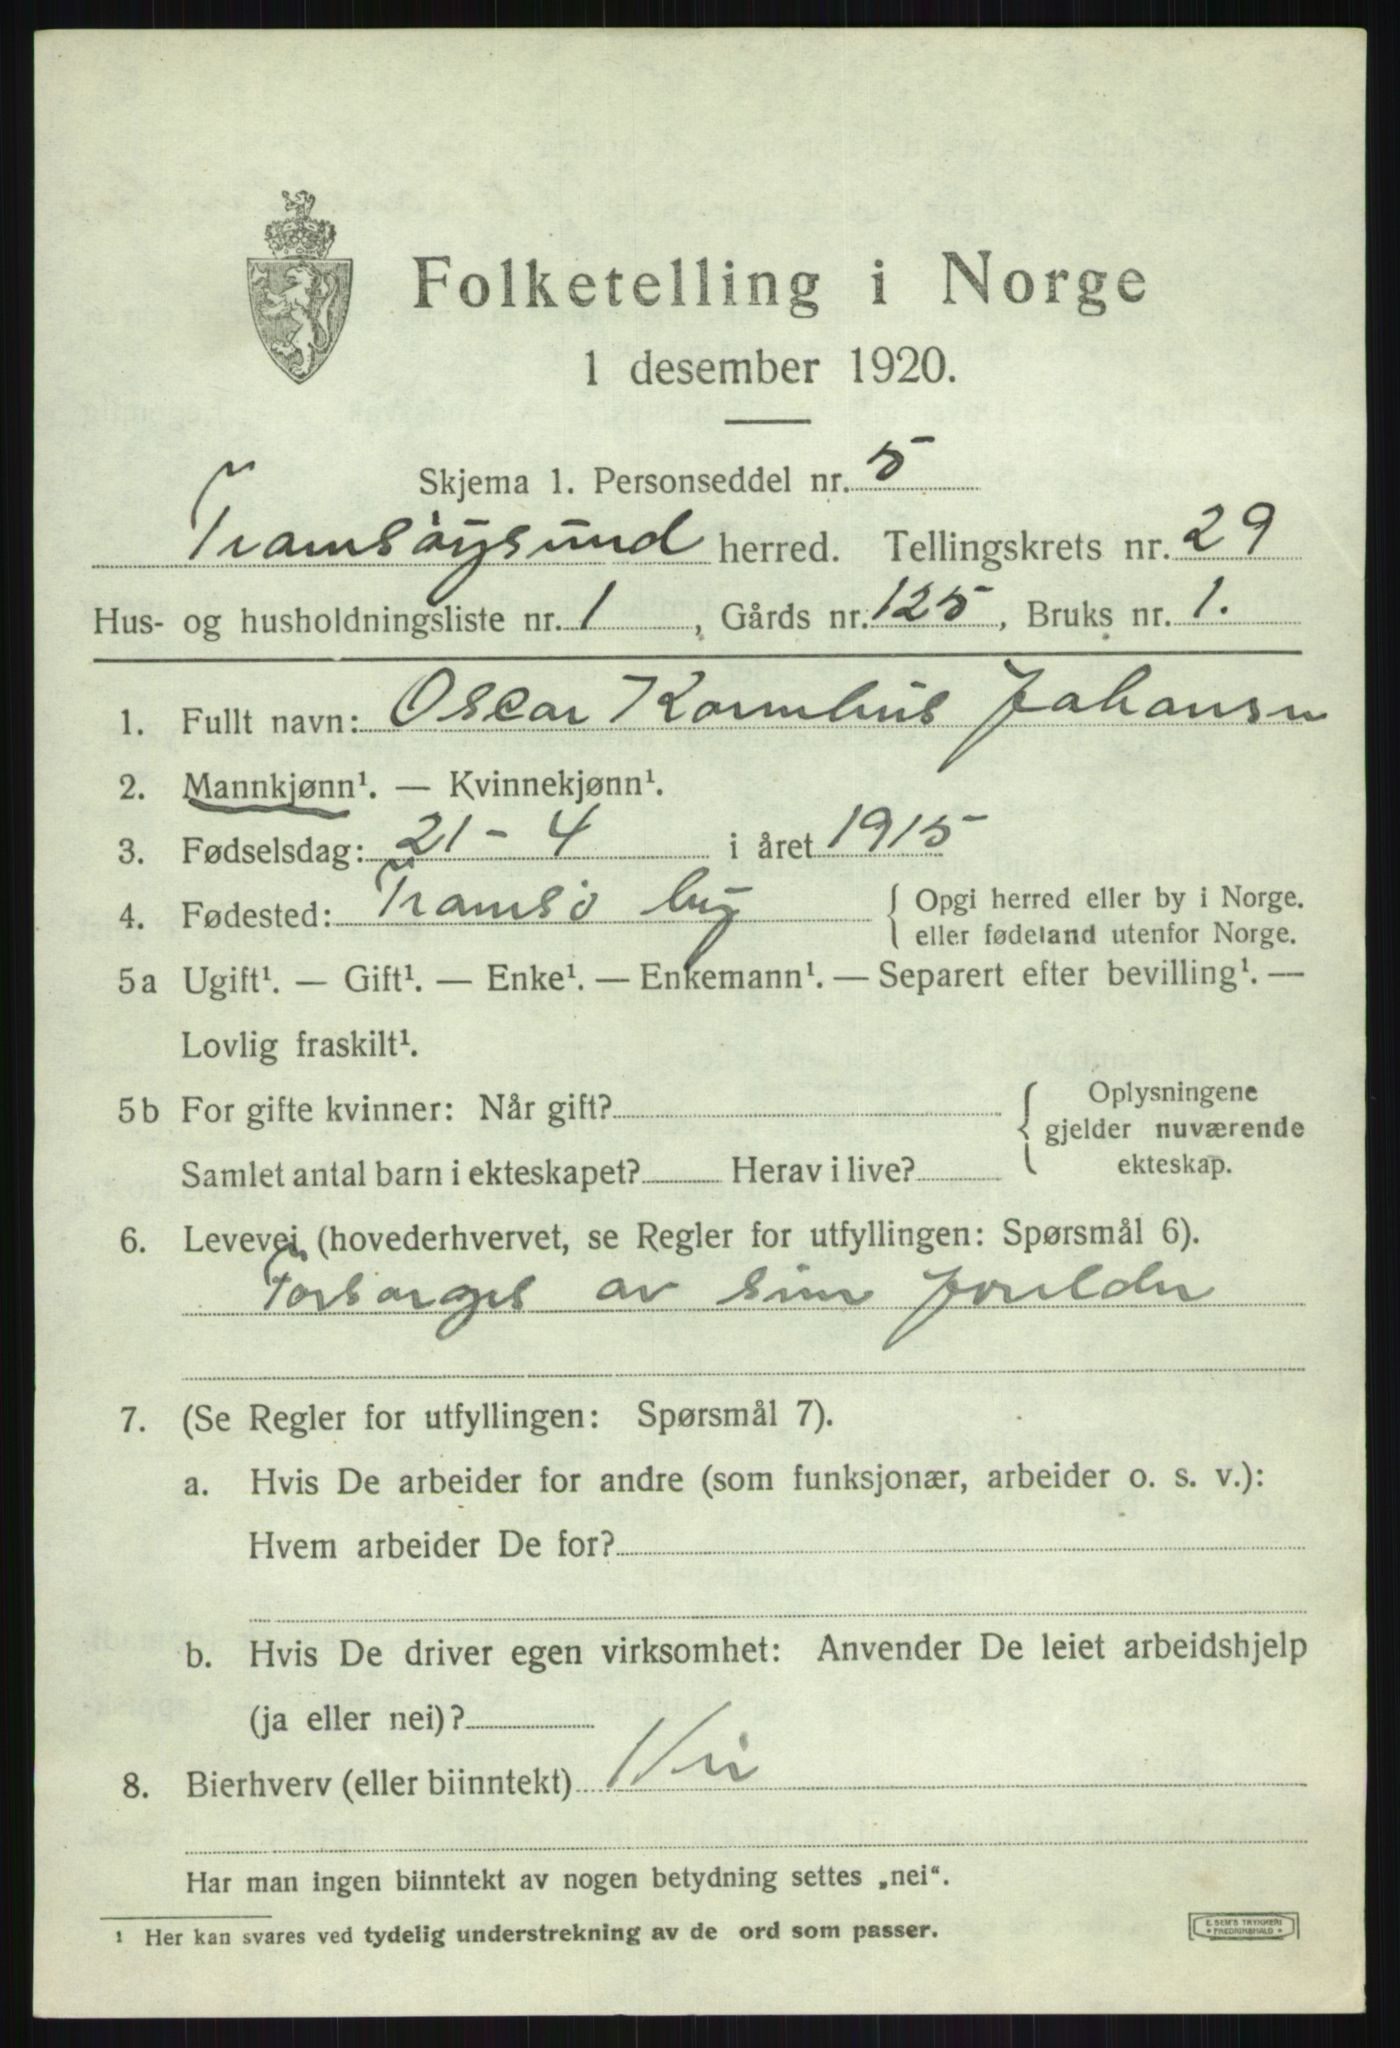 Folketelling i Norge
1 desember 1920.
Skjema 1. Personseddel nr. 5
Tromsøysund herred. Tellingskrets nr. 29
Hus- og husholdningsliste nr. 1, Gårds nr. 125, Bruks nr. 1.
1. Fullt navn: Oscar Kornelius Johansen
2. Mannkjønn¹. — Kvinnekjønn¹.
3. Fødselsdag: 21-4 i året 1915
4. Fødested: Tromsö by { Opgi herred eller by i Norge.
eller fødeland utenfor Norge.
5a Ugift¹. — Gift¹. — Enke¹. — Enkemann¹. — Separert efter bevilling¹. —
Lovlig fraskilt¹.
5b For gifte kvinner: Når gift? { Oplysningene
gjelder nuværende
Samlet antal barn i ekteskapet? Herav i live? ekteskap.
6. Levevei (hovederhvervet, se Regler for utfyllingen: Spørsmål 6).
Forsørges av sine foreldre
7. (Se Regler for utfyllingen: Spørsmål 7).
a. Hvis De arbeider for andre (som funksjonær, arbeider o. s. v.):
Hvem arbeider De for?
b. Hvis De driver egen virksomhet: Anvender De leiet arbeidshjelp
(ja eller nei)?
8. Bierhverv (eller biinntekt) Nei
Har man ingen biinntekt av nogen betydning settes „nei“.
¹ Her kan svares ved tydelig understrekning av de ord som passer.
E. SEM'S TRYKKERI
FREDRIKSHALD